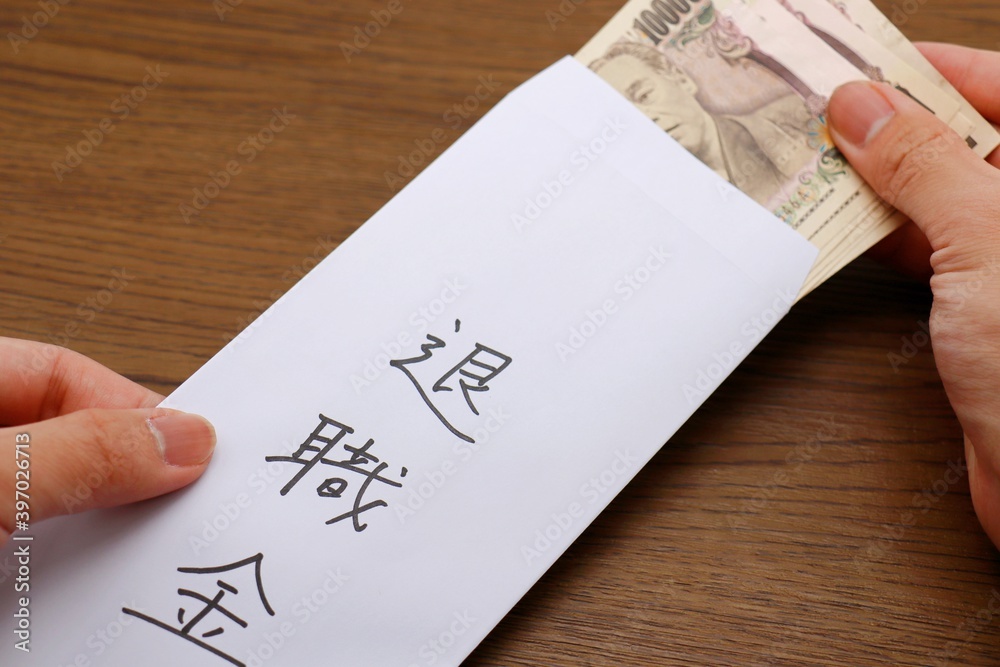 退職金
10000
Adobe Stock | #397026713
Adobe Stock